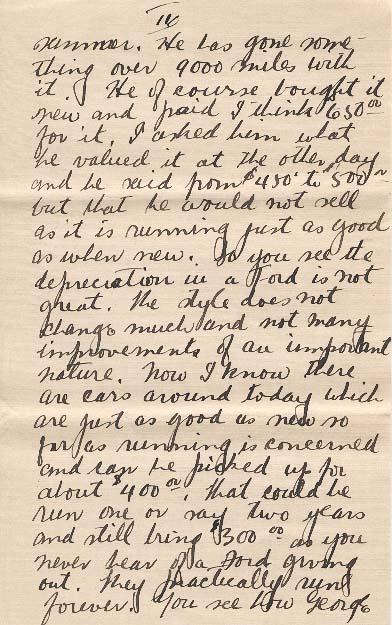 14
summer. He has gone some-
thing over 9000 miles with
it. He of course bought it
new and paid I think $650.00
for it. I asked him what
he valued it at the other day
and he said from $450 to $500.00
but that he would not sell
as it is running just as good
as when new. So you see the
depreciation in a Ford is not
great. The style does not
change much and not many
improvements of an important
nature. Now I know there
are cars around today which
are just as good as new so
far as running is concerned
and can be picked up for
about $400.00. That could be
run one or say two years
and still bring $300.00 as you
never hear of a Ford giving
out. They practically run
forever. You see how George